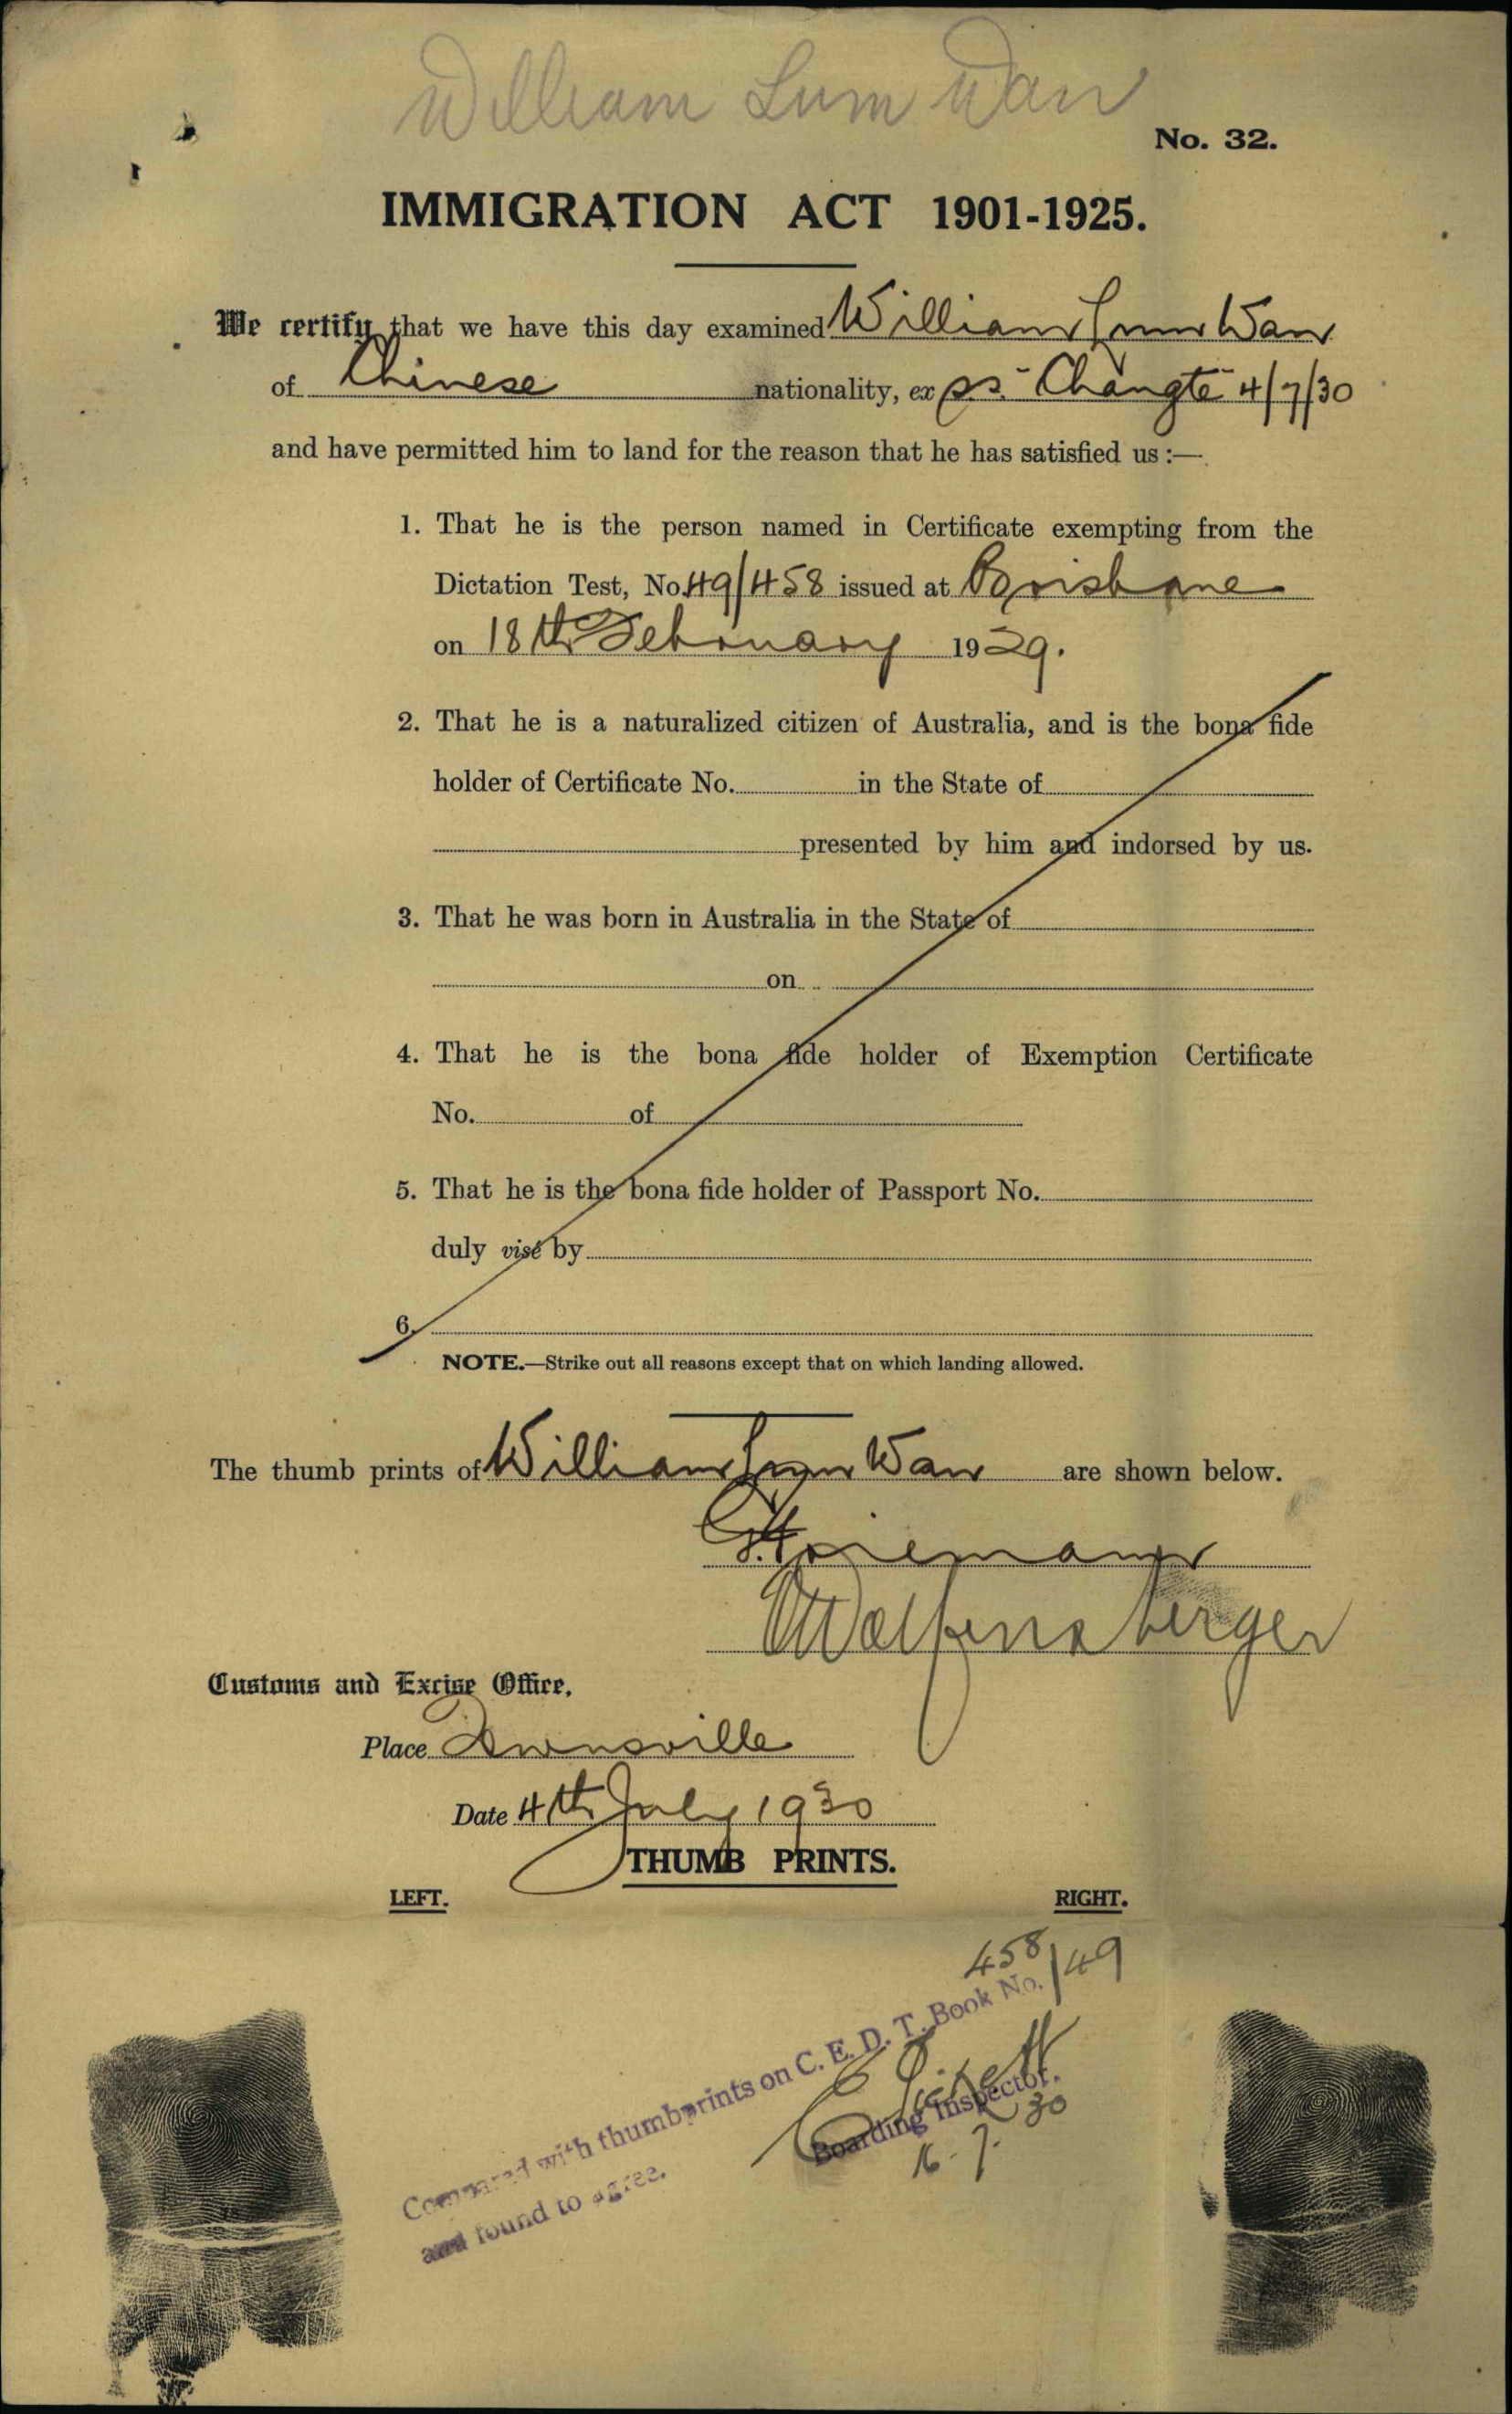 William Lum Wan
No. 32.
IMMIGRATION ACT 1901-1925.
We certify that we have this day examined William Lum Wan
of Chinese nationality, ex ss. "Changte" 4/7/30
and have permitted him to land for the reason that he has satisfied us :—
1. That he is the person named in Certificate exempting from the
Dictation Test, No. 49/458 issued at Brisbane
on 18th February 1929.
2. That he is a naturalized citizen of Australia, and is the bona fide
holder of Certificate No. in the State of
presented by him and indorsed by us.
3. That he was born in Australia in the State of
on
4. That he is the bona fide holder of Exemption Certificate
No. of
5. That he is the bona fide holder of Passport No.
duly visé by
6.
NOTE.—Strike out all reasons except that on which landing allowed.
The thumb prints of William Lum Wan are shown below.
Customs and Excise Office.
Place Townsville
Date 4th July 1930
THUMB PRINTS.
LEFT. RIGHT.
458/49
Compared with thumbprints on C. E. D. T. Book No.
and found to agree.
Boarding Inspector.
16.7.30